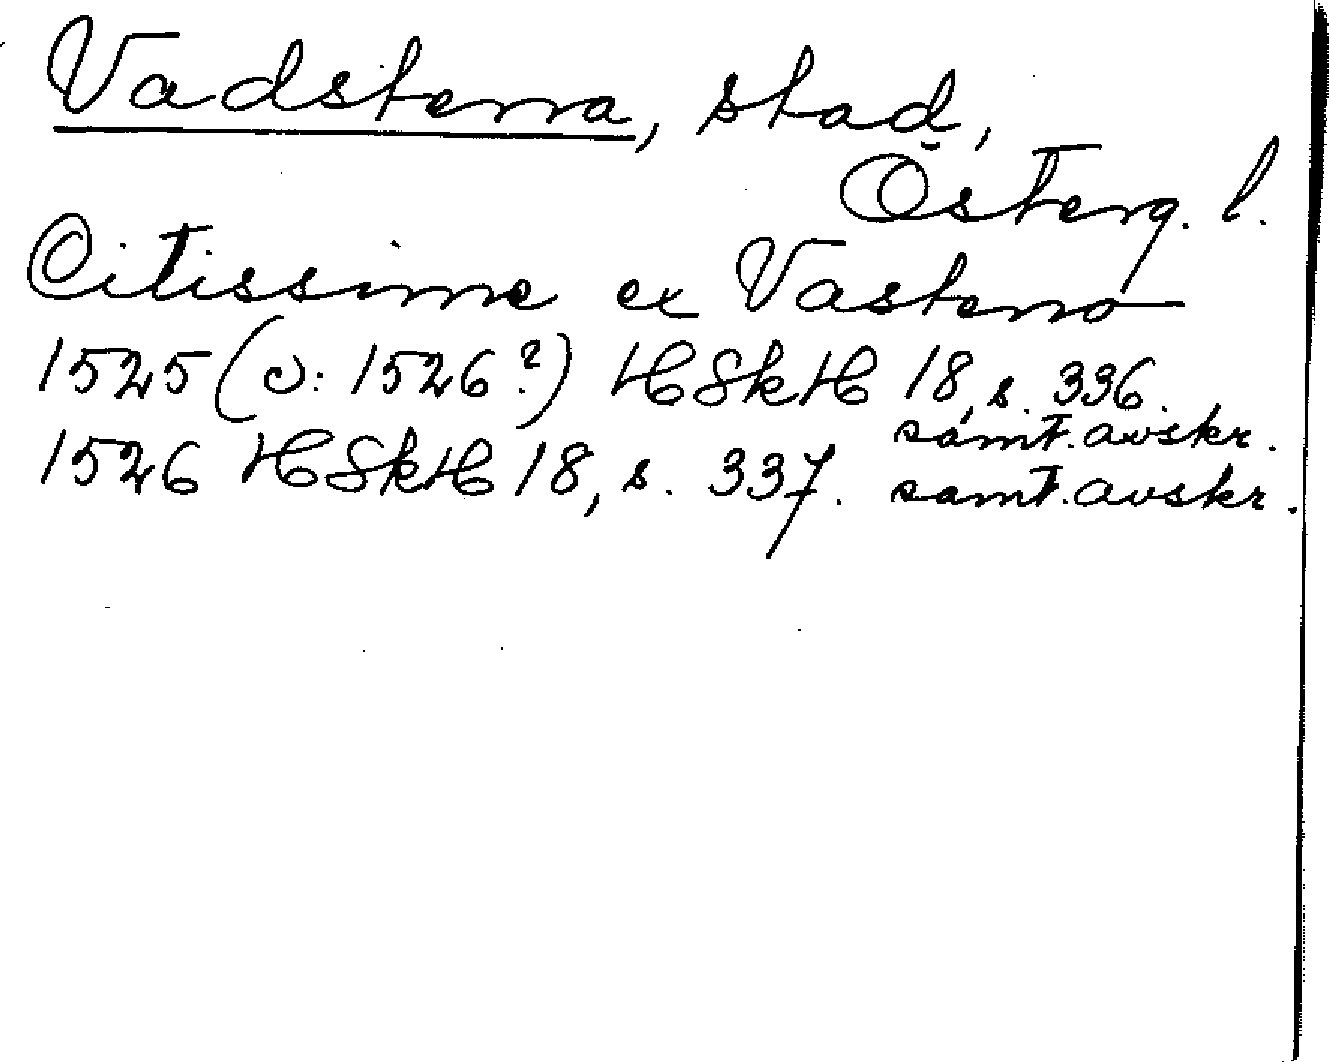 Vadstena, stad,
Österg. l.
Citissime ex Vasteno
1525 (ɔ: 1526?) HSkH 18, s. 336.
samt. avskr.
1526 HSkH 18, s. 337. samt. avskr.